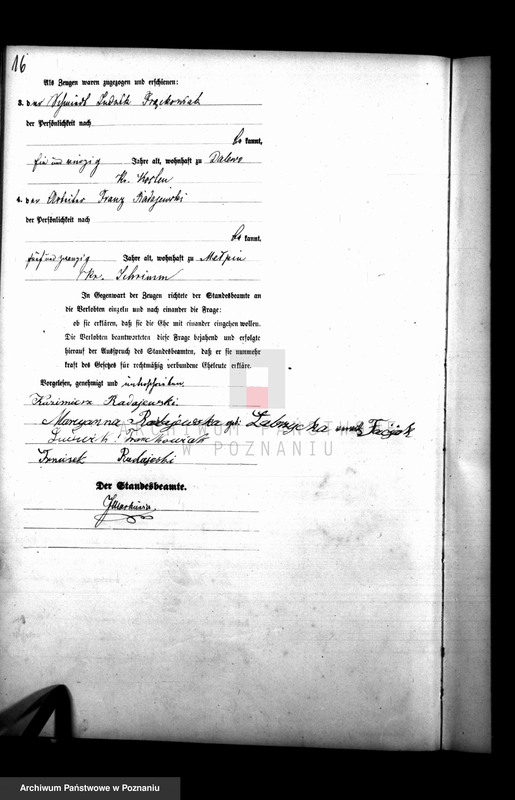 16
Als Zeugen waren zugezogen und erschienen:
3. der Schmied Ludwik Frąckowiak
der Persönlichkeit nach
be kannt,
und vierzig Jahre alt, wohnhaft zu Dalewo
Kr. Kosten
4. der Arbeiter Franz Radajewski
der Persönlichkeit nach
be kannt.
fünf und zwanzig Jahre alt, wohnhaft zu Małpin
Kr. Schrimm
In Gegenwart der Zeugen richtete der Standesbeamte an
die Verlobten einzeln und nach einander die Frage:
ob sie erklären, daß sie die Ehe mit einander eingehen wollen.
Die Verlobten beantworteten diese Frage bejahend und erfolgte
hierauf der Ausspruch des Standesbeamten, daß er sie nunmehr
kraft des Gesetzes für rechtmäßig verbundene Eheleute erkläre.
Vorgelesen, genehmigt und unterschrieben
Kazimierz Radajewski
Maryanna Radajewska
Ludwik Frąckowiak
Radajeski
Der Standesbeamte.
ARCHIWUM PAŃSTWOWE
W POZNANIU
Archiwum Państwowe w Poznaniu